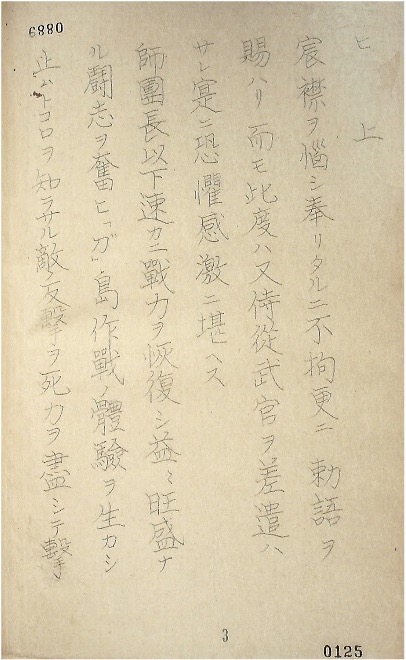 0889
ヒ 上
宸襟ヲ惱シ奉リタルニ不拘更ニ 勅語ヲ
賜ハリ而モ此度ハ又侍從武官ヲ差遣ハ
サレ寔ニ恐懼感激ニ堪ヘス
師團長以下速カニ戰力ヲ恢復シ益ミ旺盛ナ
ル鬪志ヲ奮ヒ「ガ」島作戰ノ體驗ヲ生カシ
止ムトコロヲ知ラサル敵ノ反擊ヲ死力ヲ盡シテ擊
3
0125